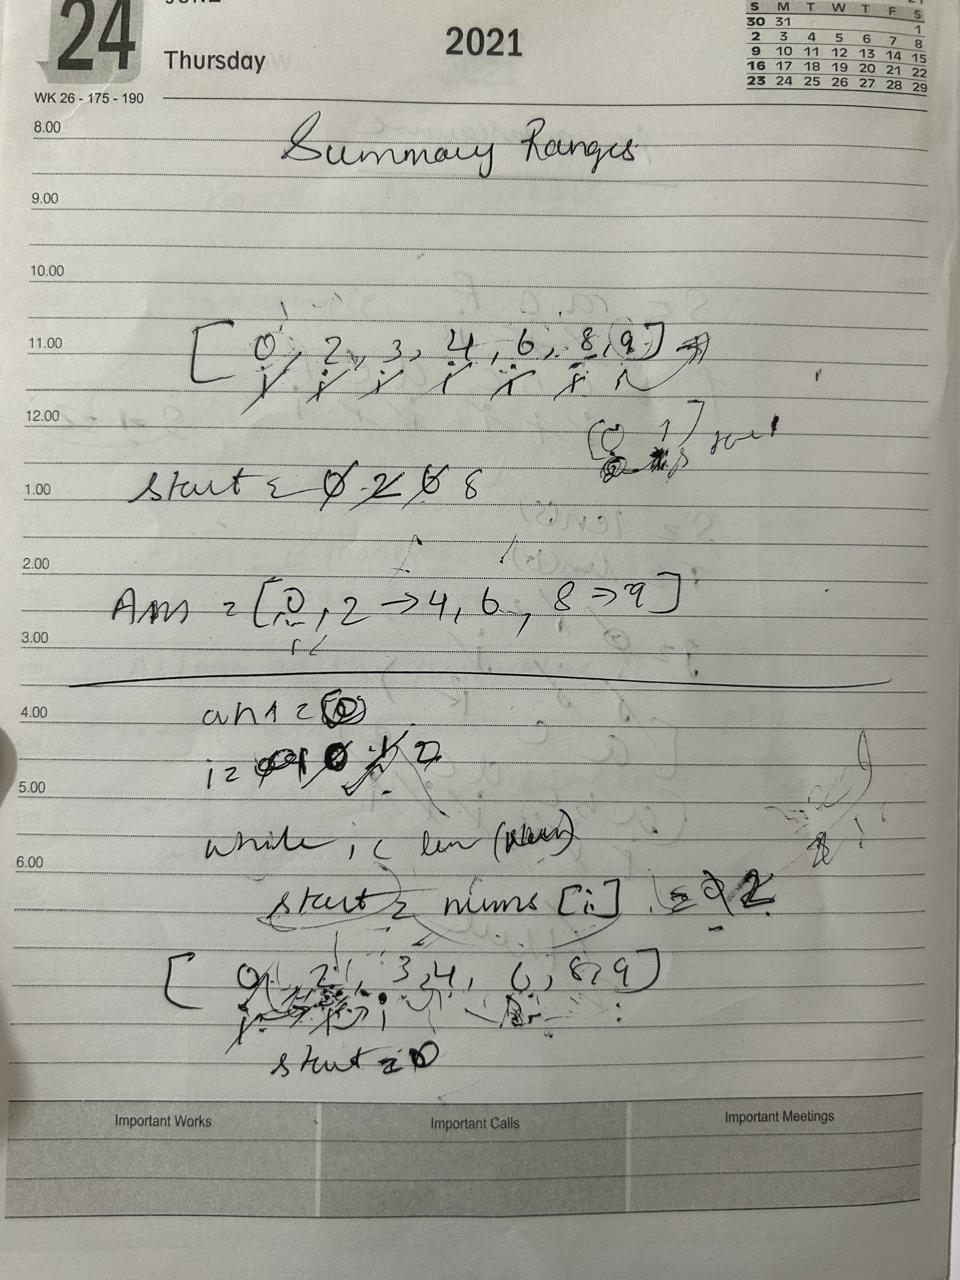 24
JUNE
Thursday
2021
WK 26 - 175 - 190
S M T W T F S
30 31 1
2 3 4 5 6 7 8
9 10 11 12 13 14 15
16 17 18 19 20 21 22
23 24 25 26 27 28 29
8.00
Summary Ranges
9.00
10.00
11.00 [ 0, 2, 3, 4, 6, 8, 9 ]
i i i i i i i
12.00
1.00 start = 0 2 6 8
2.00
Ans = [ 0, 2 → 4, 6, 8 → 9 ]
3.00
4.00 ans =
i =
5.00
while i < len (
6.00
start = nums [i]
[ 0, 2, 3, 4, 6, 8, 9 ]
start = 0
Important Works Important Calls Important Meetings